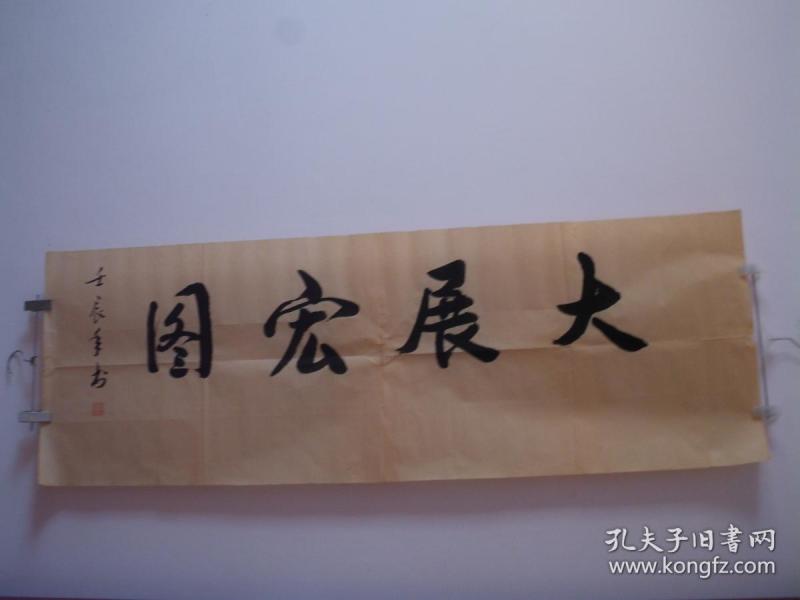 大展宏图
壬辰年书
孔夫子旧书网
www.kongfz.com